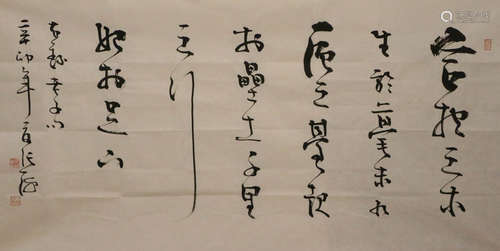 合抱之木
生於毫末九
层之臺起
於累土千里
之行
始於足下
老子句
辛卯年